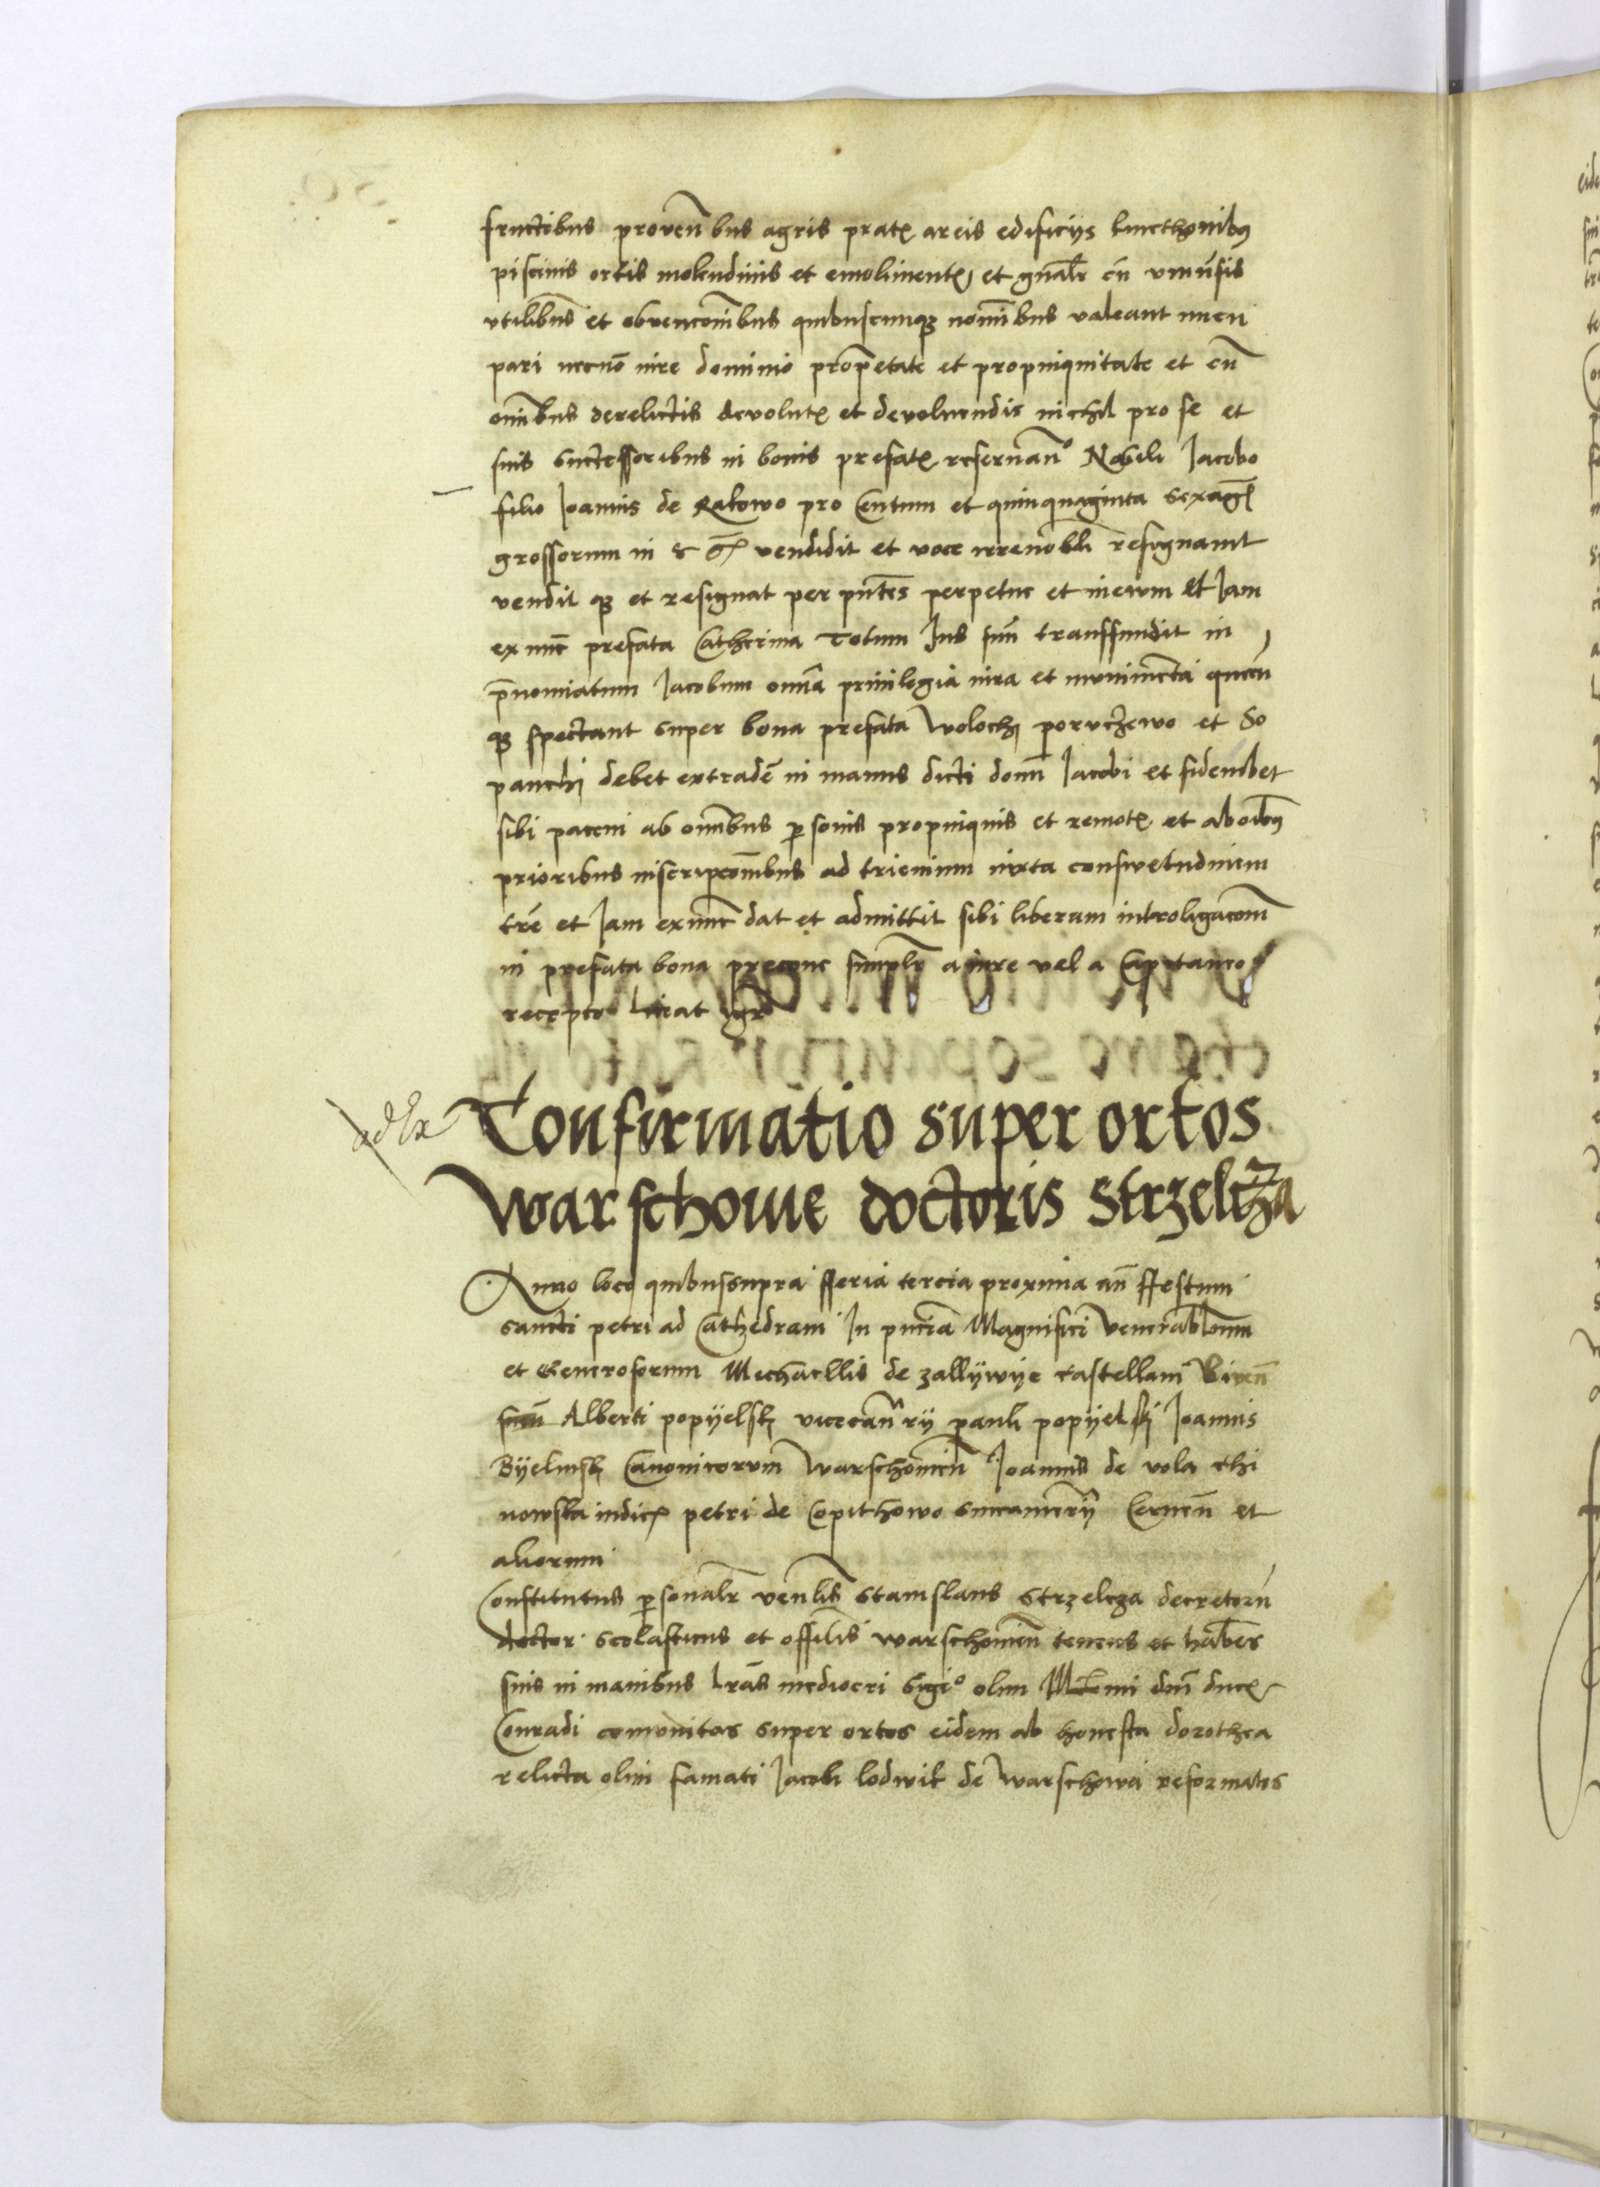 fructibus provenbus agris prat areis edificiis kmethonibus
piscinis ortis molendinis et emoliment et gnalr cu vniusis
vtilibus et obvencoibus quibuscunque nomibus valeant nuncu
pari necno iure dominio proprietate et propinquitate et cu
omibus derelictis devolut et devoluendis nichil pro se et
suis successoribus in bonis prefat reseruan Nobili Jacobo
filio Joannis de Rakowo pro Centum et quinquaginta Sexag
grossorum in vendidit et voce irrenobli resignauit
vendit que et resignat per pntes perpetue et in ewm Et Jam
ex nuc prefata Catherina Totum Jus suu transsfundit in
prenomiatum Jacobum omia priuilegia iura et munimeta quecu
que spectant super bona prefata Woloch porvczewo et So
panchi debet extrade in manus dicti domi Jacobi et fideiubet
sibi pacem ab omibus personis propinquis et remot et ab oibus
prioribus inscripcoibus ad trienium iuxta conswetudinem
tre et Jam exnuc dat et admittit sibi liberam introligacom
in prefata bona precone simplr a iure vel a Capitaneo
recepto
Confirmatio super ortos
warschouie doctoris strzelcza
Anno loco quibussupra fferia tercia proxima an ffestum
sancti petri ad Cathedram In pncia Magnifici Venerabliom
et Generosorum Mechaellis de zallywye Castellani
Alberti popyelsky vicecanrii pauli popyelsky Joannis
Byelinsky Canonicorum Warschouien Joannis de vola chi
nowska iudic petri de Copithowo succamerii Cernen et
aliorum
Constitutus personalr venlis Stanislaus Strzelcza decretoru
doctor scolasticus et offilis warschouien tenens et habes
suis in manibus lras mediocri Sigo olim domi duc
Conradi comunitas super ortos eidem ab honesta dorothea
relicta olim famati Jacobi lodwik de Warschowia reformatos